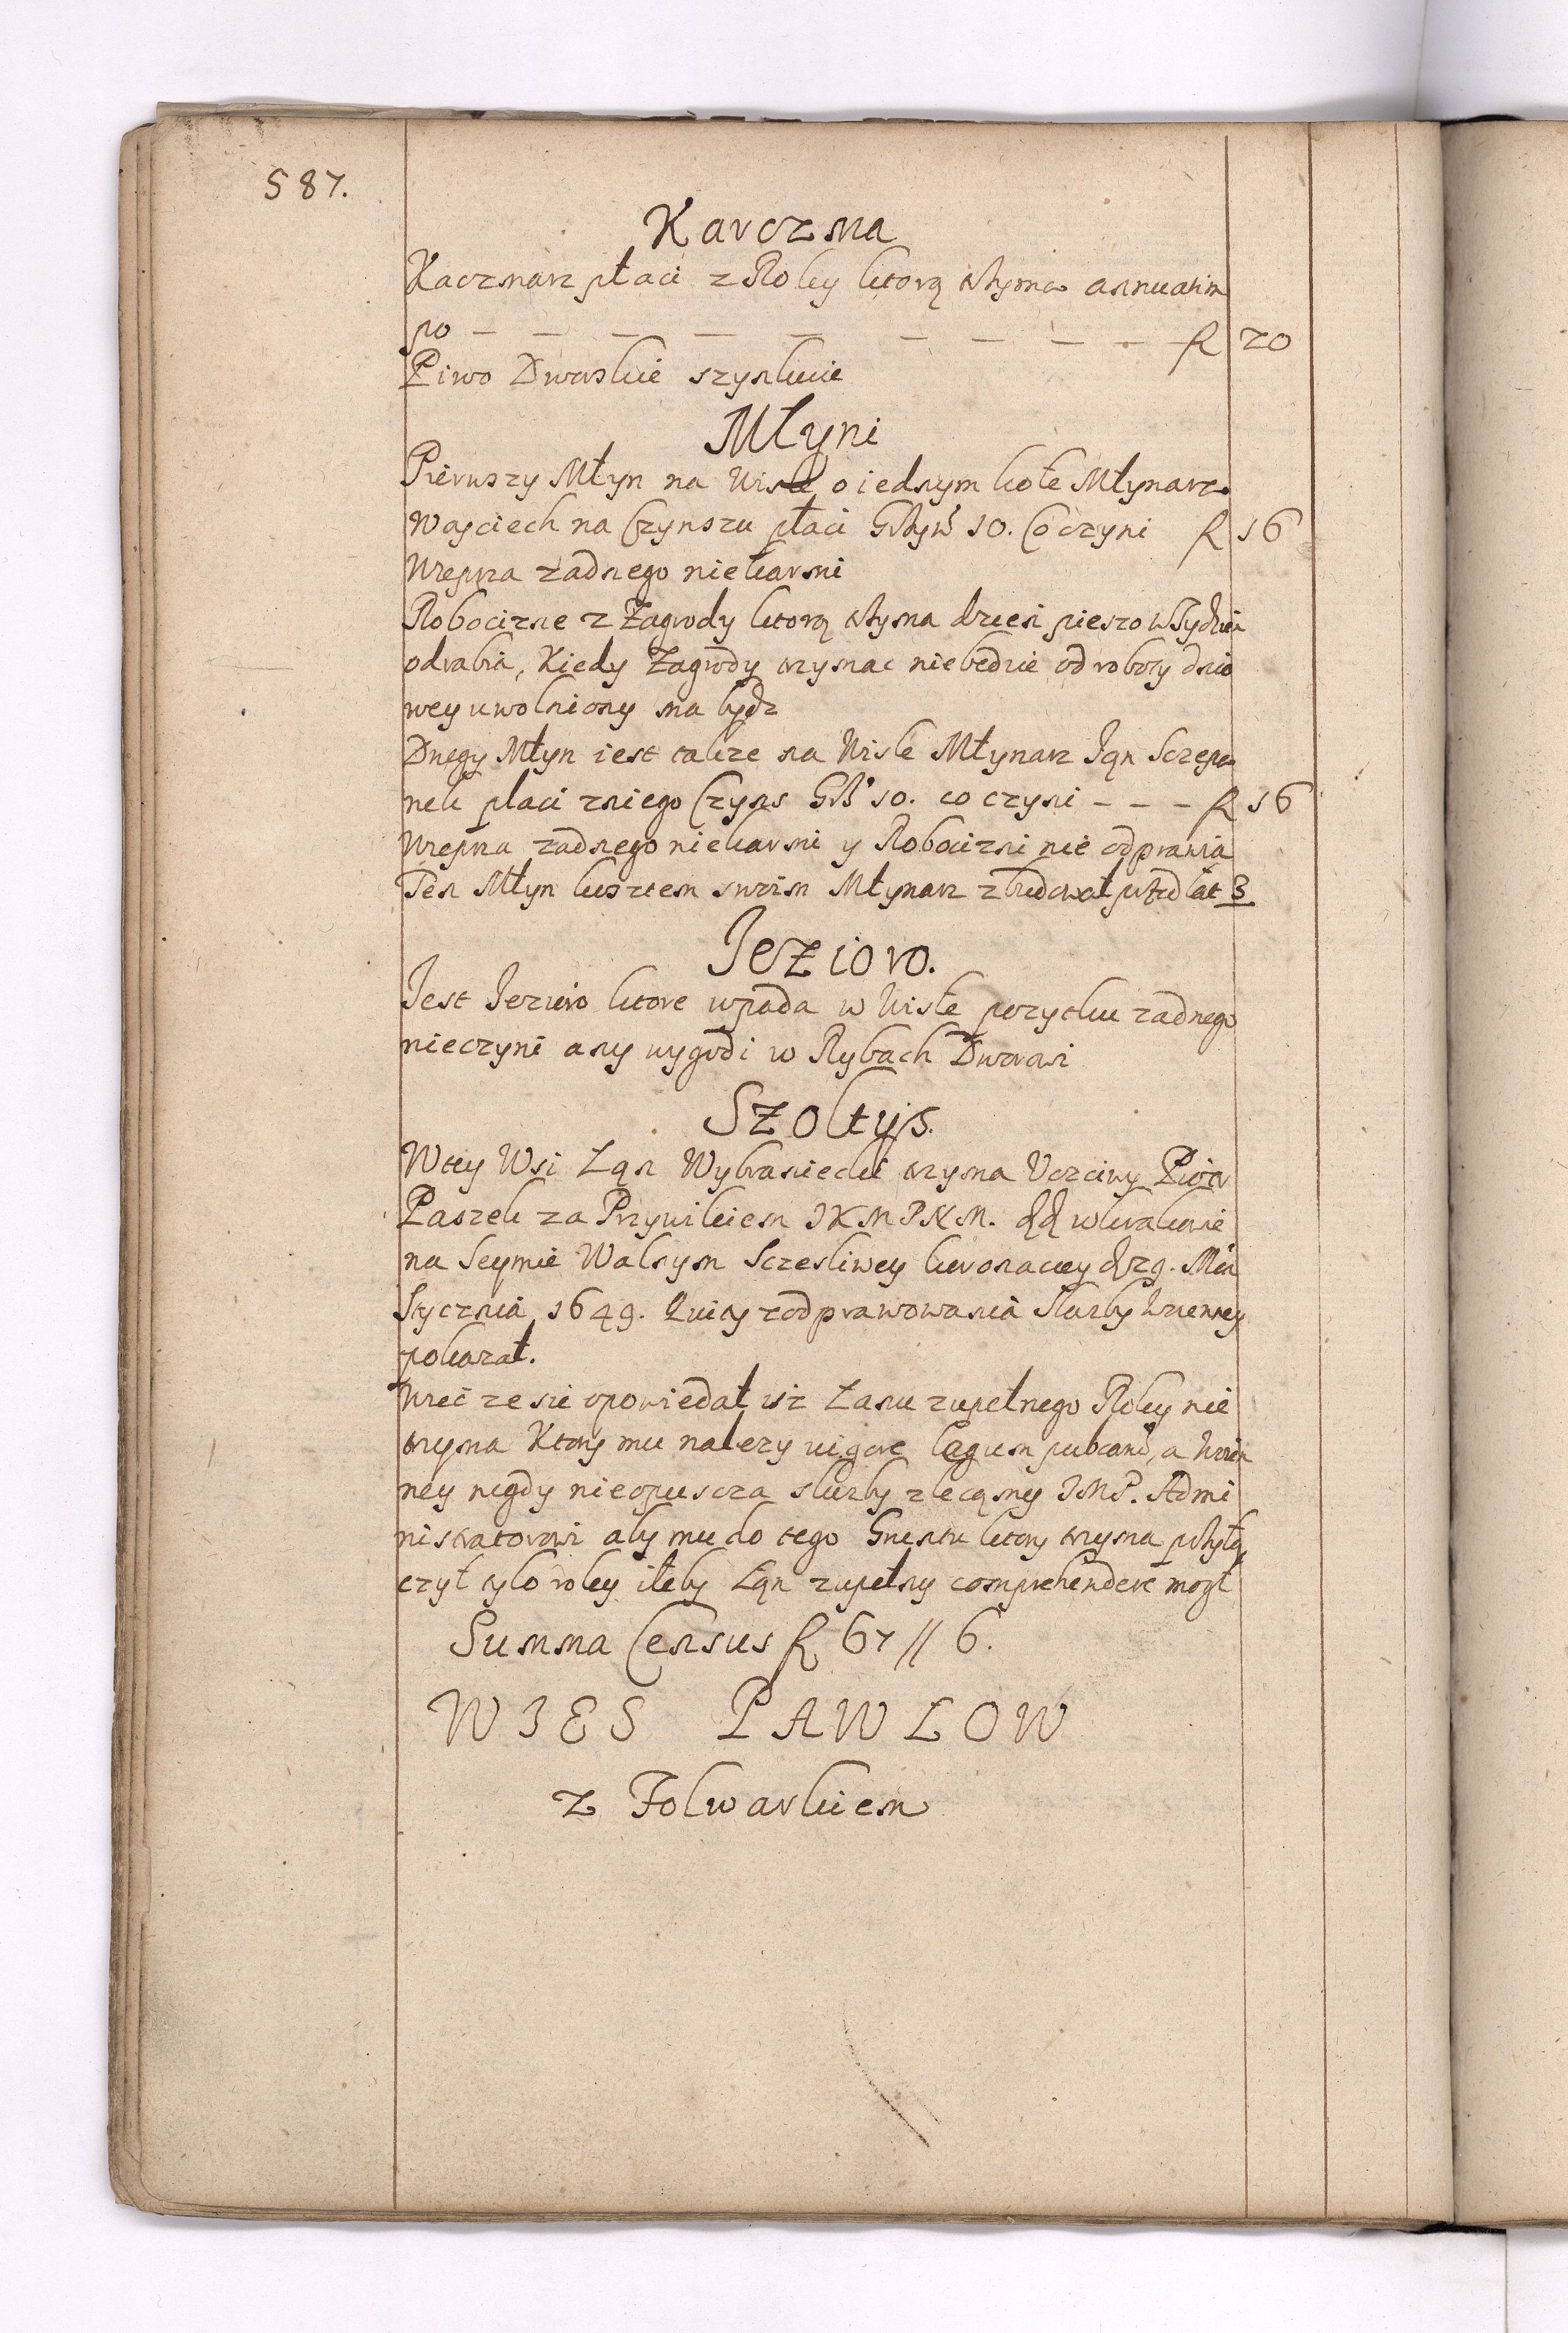 587.
Karczma
Kaczmarz płaci z Roley ktorą trzyma annuatim
po – – – – – – – – – – fl 20
Piwo Dworskie szynkuie
Młyni
Pierwszy Młyn na Wisle o iednym kole Młynarz
Woyciech na Czynszu płaci Grzyw 10. Co czyni fl 16
Wieprza zadnego niekarmi
Robocizne z Zagrody ktorą trzyma dzien pieszo w Tydzien
odrabia, Kiedy Zagrody trzymac niebedzie od roboty dnio
wey uwolniony ma bydz
Drugy Młyn iest takze na Wisle Młynarz Jąn Sczepa
nek płaci zniego Czyns Grz 10. co czyni – – – fl 16
Wieprza zadnego niekarmi y Robocizni nie odprawia
Ten Młyn kosztem swoim Młynarz zbudował przed lat 3
Jezioro.
Jest Jezioro ktore wpada w Wisłe pozytku zadnego
nieczyni any wygodi w Rybach Dworowi
Szoltys.
W tey Wsi Łąn Wybraniecki trzyma Uczciwy Piotr
Paszek za Przywileiem JKM PNM. dd w Krakowie
na Seymie Walnym Sczesliwey koronacyey d 29. Mca
Stycznia 1649. Quity z odprawowania Sluzby Wienney
pokazał.
Wiec ze sie opowiedał isz Łanu zupełnego Roley nie
trzyma Ktory mu nalezy uigore Legum publicarum, a Woien
ney nigdy nieopuscza sluzby zlecąmy JMP. Admi
nistratorowi aby mu do tego Gruntu ktory trzyma przyłą
czył tylo roley ileby Łąn zupełny comprehendere mogł
Summa Census fl 67 // 6.
WIES PAWLOW
z Folwarkiem